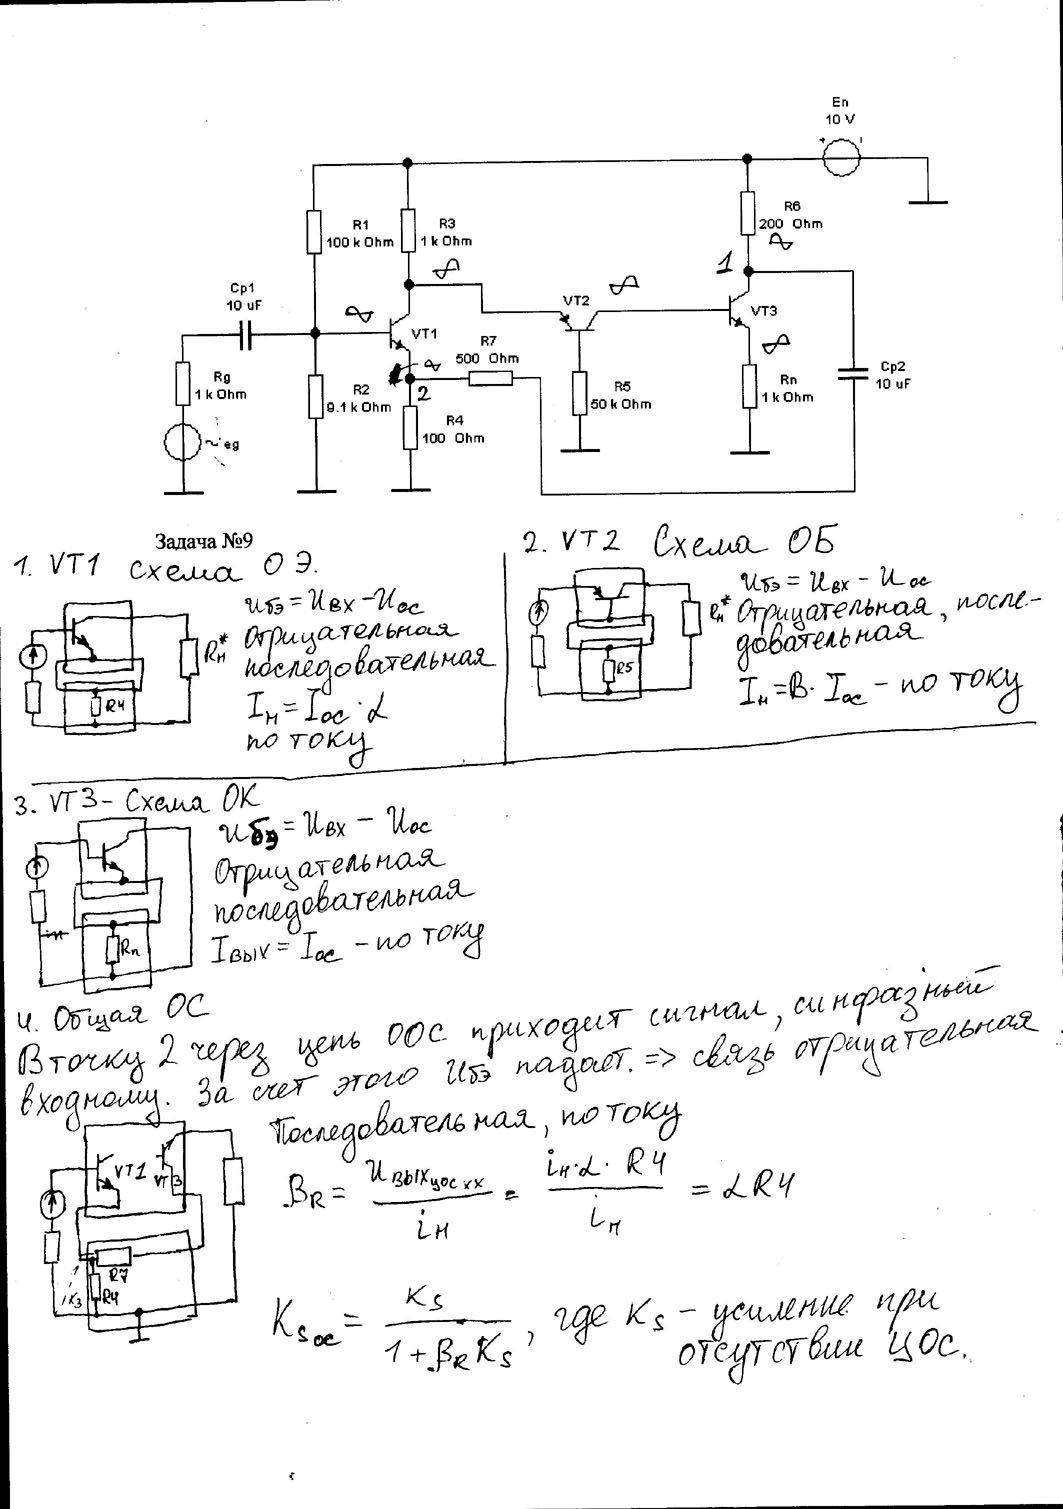 En
10 V
R1
100 k Ohm
R3
1 k Ohm
R6
200 Ohm
1
Cp1
10 uF
VT1
VT2
VT3
R7
500 Ohm
Rg
1 k Ohm
eg
R2
9.1 k Ohm
2
R4
100 Ohm
R5
50 k Ohm
Rn
1 k Ohm
Cp2
10 uF
Задача №9
1. VT1 схема ОЭ.
Uбэ = Uвх - Uос
Отрицательная
последовательная
Iн = Iос · α
по току
Rн*
R4
2. VT2 Схема ОБ
Uбэ = Uвх - Uос
Отрицательная, после-
довательная
Iн = B · Iос - по току
Rн*
R5
3. VT3 - Схема ОК
Uбэ = Uвх - Uос
Отрицательная
последовательная
Iвых = Iос - по току
Rn
4. Общая ОС
В точку 2 через цепь ООС приходит сигнал, синфазный
входному. За счет этого Uбэ падает. => связь отрицательная
Последовательная, по току
VT1
VT3
R7
R4
βR = Uвыхцосхх / iн = iн·α · R4 / iн = αR4
Ksос = Ks / 1 + βR Ks , где Ks - усиление при
отсутствии ЦОС.